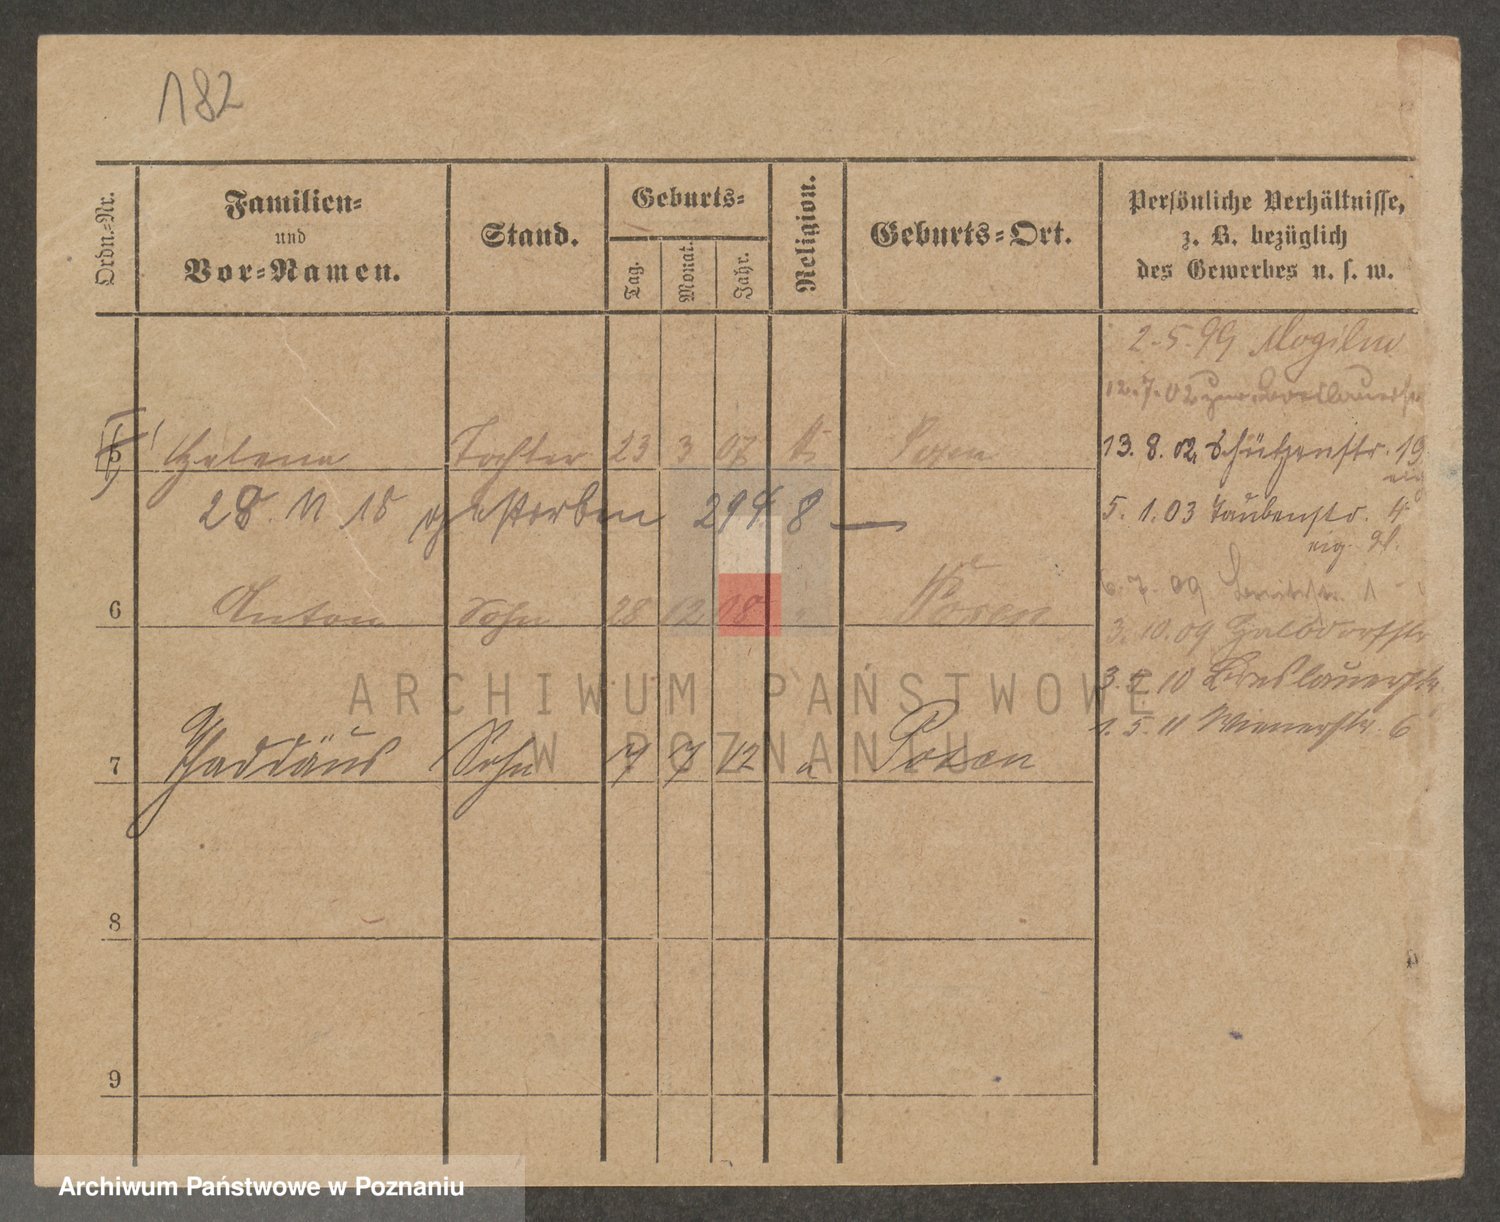 182
Ordn.-Nr.
Familien-
und
Vor-Namen.
Stand.
Geburts-
Tag.
Monat.
Jahr.
Religion.
Geburts-Ort.
Persönliche Verhältnisse,
z. B. bezüglich
des Gewerbes u. s. w.
2.5.99 Mogilno
12.7.02 Breslauerstr
5 Helena Tochter 23 3 07 k. Posen
13.8.02 Schützenstr. 19
28. 11 15 gestorben
5.1.03 Taubenstr. 4
eig.
6 Anton Sohn 28 12 Posen
6.7.09
3.10.09 Halbdorfstr
3. 10 Breslauerstr
1.5.11 Wienerstr. 6
7 Thaddäus Sohn 7 12 Posen
8
9
ARCHIWUM PAŃSTWOWE
W POZNANIU
Archiwum Państwowe w Poznaniu